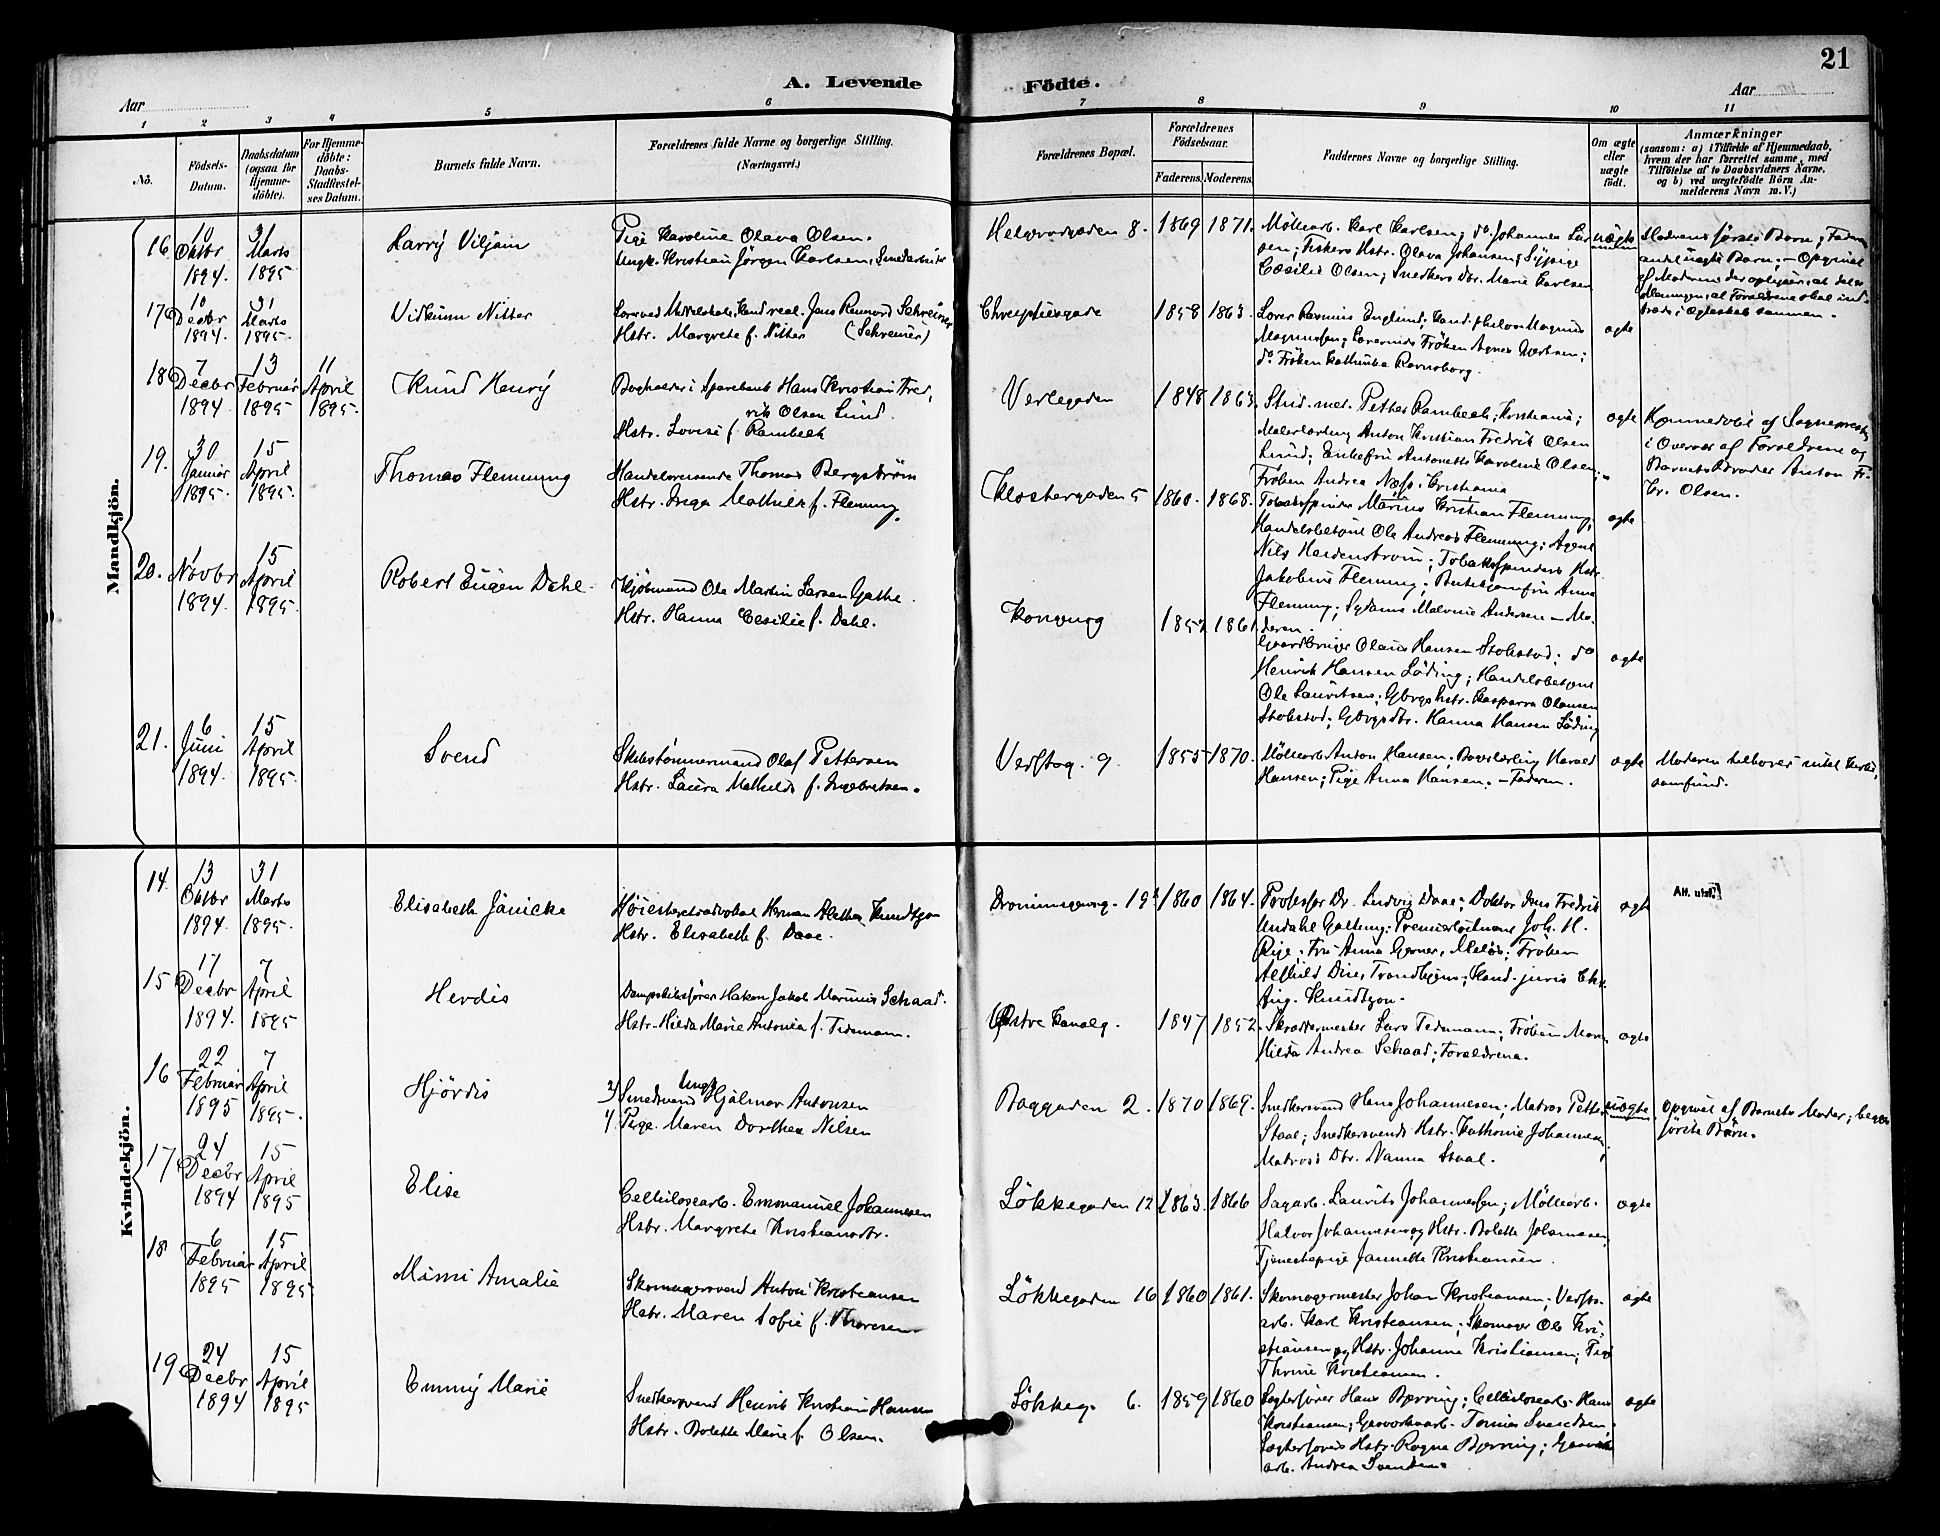 21
A. Levende Födte.
Aar
Aar
1 2 3 4 5 6 7 8 9 10 11
No.
Födsels-Datum.
Daabsdatum (ogsaa for Hjemme-döbte).
For Hjemme-döbte: Daabs-Stadfæstel-ses Datum.
Barnets fulde Navn.
Forældrenes fulde Navne og borgerlige Stilling. (Næringsvei.)
Forældrenes Bopæl.
Forældrenes Födselsaar.
Faderens. Moderens.
Faddernes Navne og borgerlige Stilling.
Om ægte eller uægte födt.
Anmærkninger
(saasom: a) i Tilfælde af Hjemmedaab, hvem der har forrettet samme, med Tilföielse af to Daabsvidners Navne, og b) ved uægtefödte Börn An-melderens Navn m. V.)
Mandkjön.
16. 10 Oktbr 1894. 31 Marts 1895
Harry Viljam
Pige Karoline Olava Olsen.
Ungk. Kristian Jörgen Karlsen, Smedarbeider
8. 1869 1871.
Møllearb. Karl Karlsen; do Johannes Lar
sen; Fiskers Hstr. Olava Johansen; Sypige
Cæsilie Olsen; Snedkers Dtr. Marie Karlsen
uægte
Moderens første Barn; Faderens
andet uægte Barn; - Opgivet
af Moderen der oplyser, at det er
Meningen, at Forældrene skal ind-
træde i Ægteskab sammen.
17 10 Decbr 1894. 31 Marts 1895.
Vidkunn Nitter
Schreiner
Hstr. Margrete f. Nitter (Schreiner)
1858 1863.
Lærer Rasmus Englund; Kand. philos. Magnus
Magnussen; Lærerinde Frøken Agnes
do Frøken Kathinka Ravnsborg.
ægte
18 7 Decbr 1894. 13 Februar 1895 11 April 1895.
Knud Henry
Bogholder i Sparebank Hans Kristian Fred,
rik Olsen Lund.
Hstr. Lovise f. Rambech
Verlegaden 1848 1863.
Stud. med. Petter Rambech, Kristiania;
Malerlærling Anton Kristian Fredrik Olsen
Lund; Enkefru Antonette Karoline Olsen;
Frøken Andrea Næss, Kristiania
ægte
Hjemmedøbt af Sognepresten
i Overvær af Forældrene og
Barnets Broder Anton Fr.
Kr. Olsen.
19. 30 Januar 1895. 15 April 1895.
Thomas Flemming
Handelsreisende Thomas Bergström
Hstr. Inga Mathilde f. Flemming.
Klostergaden 5 1860. 1868.
Tobakspinder Marius Kristian Flemming;
Handelsbetjent Ole Andreas Flemming; Agent
Nils Heidenstrom; Tobakspinders Hstr.
Jakobine Flemming; Butikjomfru Anna
Flemming; Sydame Malvine Andersen - Mo-
deren.
ægte
20. 1 Novbr 1894. 15 April 1895.
Robert Eugen Dahl.
Kjöbmand Ole Martin Larsen Gathe.
Hstr. Hanna Cecilie f. Dahl.
Kongensg 1857 1861.
Gaardbruger Olaus Hansen Stokstad; do
Henrik Hansen Löding; Handelsbetjent
Ole Lauritsen; Gbrgs hstr. Kasparra Olausen
Stokstad; Gbrgs dtr. Hanna Hansen Löding
ægte
21. 6 Juni 1894. 15 April 1895.
Svend
Skibstömmermand Olaf Pettersen
Hstr. Laura Mathilde f. Ingebretsen.
Verftsg. 9. 1855 1870.
Møllearb. Anton Hansen; Harald
Hansen; Pige Anna Hansen. - Faderen.
ægte
Moderen tilhører intet Kirke-
samfund.
Kvindekjön.
14. 13 Oktbr 1894. 31 Marts 1895.
Elisabeth Jänicke
Höiesteretsadvokat Herman Knudtzon
Hstr. Elisabeth f. Daae.
Dronningensg. 19 1860 1864.
Professor Dr. Ludvig Daae; Doktor Jens Fredrik
Undahl Gattung; Premierløitnant Joh. H.
Rye; Fru Anna Gerner; Frøken
Trondhjem; Kand. juris Chr.
Aug. Knudtzon.
ægte
Att. utst.
15 17 Decbr 1894. 7 April 1895
Herdis
Dampskibsfører Hakon Jakob Marinius Schaad.
Hstr. Hilda Marie Antonia f. Tidemann.
Östre Kanalg. 1847 1852.
Skræddermester Lars Tidemann; Frøken
Hilda Andrea Schaad; Forældrene.
ægte
16 22 Februar 1895 7 April 1895.
Hjördis
2) Smedsvend Ungk Hjalmar Antonsen
1) Pige Maren Dorthea Nilsen
Baggaden 2. 1870 1869.
Snedkersvend Hans Johannesen; Matros Petter
Staal; Snedkersvends Hstr. Kathrine Johannesen;
Matros's Dtr. Nanna Staal.
uægte
Opgivet af Barnets Moder; begges
første Barn.
17 24 Decbr 1894 15 April 1895
Elise
Cellulosearb. Emmanuel Johannesen
Hstr. Margrete Kristiansdtr.
Lökkegaden 12 1863. 1866
Sagarb. Laurits Johannessen; Møllearb.
Halvor Johannesen og Hstr. Bolette Johannesen;
Tjenestepige Jannette Kristiansen.
ægte
18 6 Februar 1895 15 April 1895
Mimi Amalie
Skomagersvend Anton Kristiansen
Hstr. Maren Sofie f. Thoresen
Lökkegaden 16 1860 1861.
Skomagermester Johan Kristiansen; Verfts-
arb. Karl Kristiansen; Skomager Ole Kri-
stiansen og Hstr. Johanne Kristiansen;
Thrine Kristiansen.
ægte
19 24 Decbr 1894 15 April 1895
Emmy Marie
Snedkersvend Henrik Kristian Hansen
Hstr. Bolette Marie f. Olsen.
Lökkeg. 6. 1859 1860
Hans Bjerring; Cellulosearb. Hans
Kristiansen; Gasværksarb. Tomas Svendsen;
Hstr. Ragna Bjerring; Gasværks
arb. Andrea Svendsen.
ægte